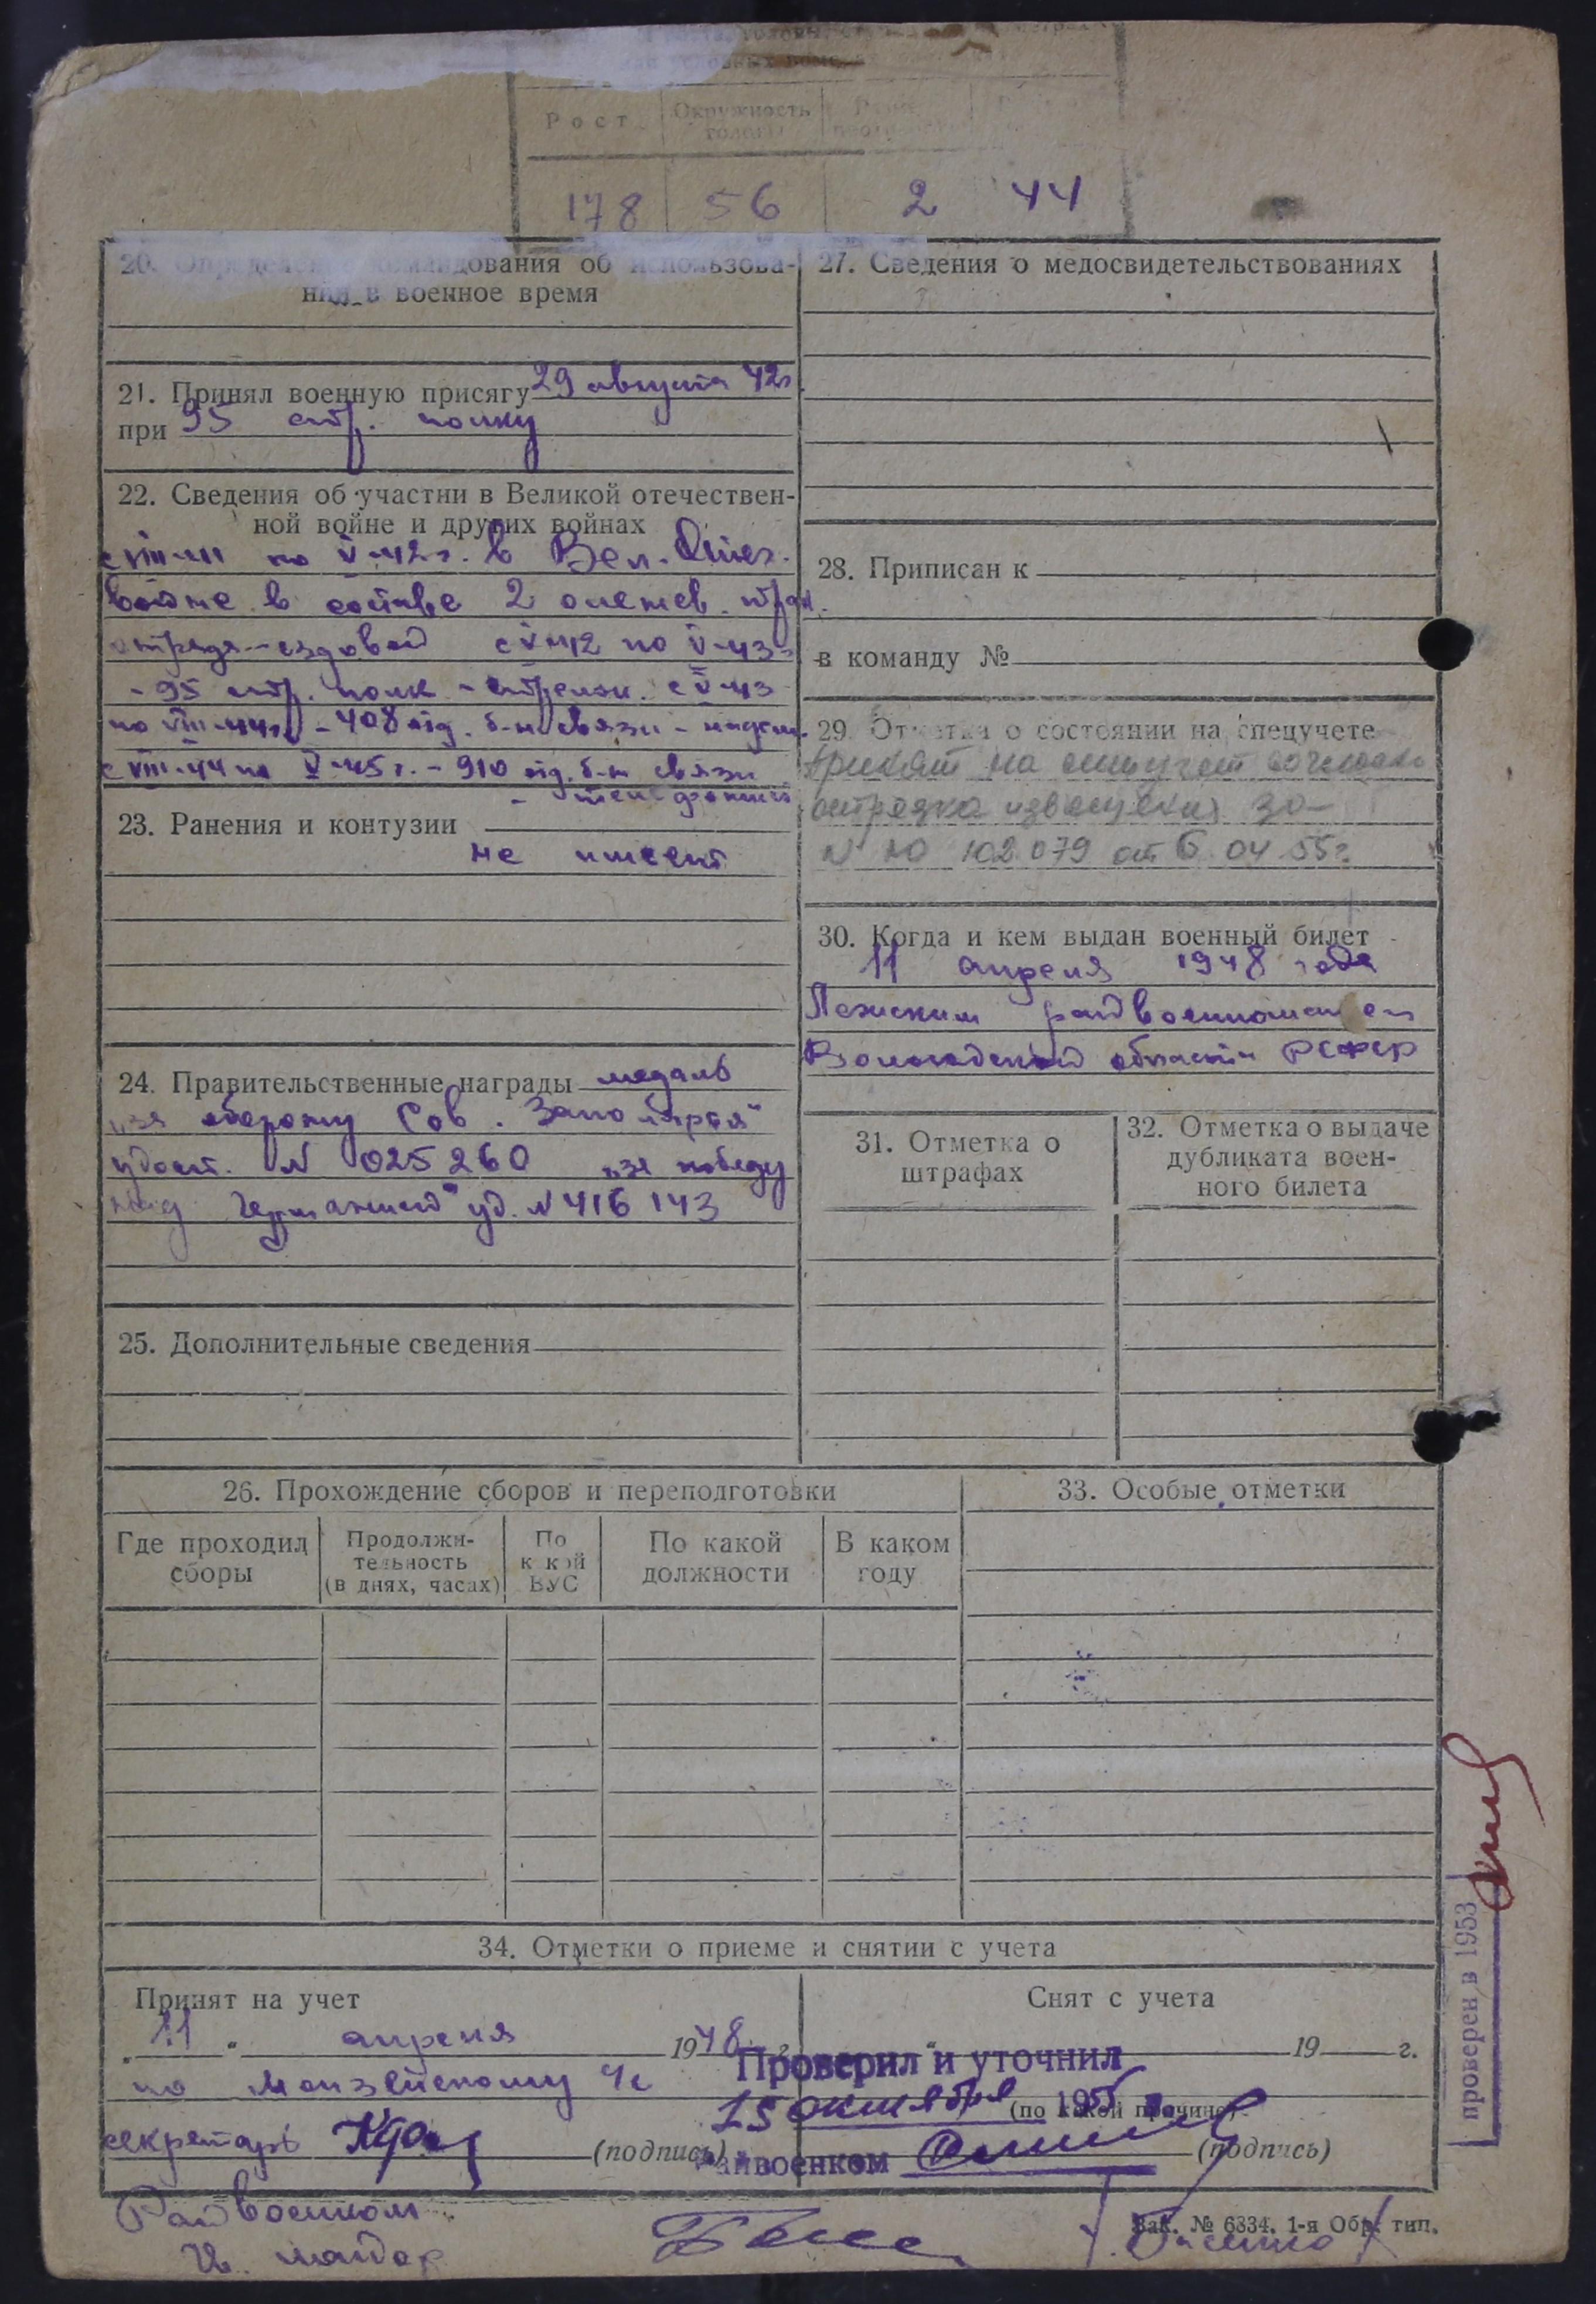 Рост Окружность головы
178 56 2 44
20. Определение командования об использова-
ния в военное время
21. Принял военную присягу 29 августа 42г
при 95 стр. полку
22. Сведения об участии в Великой отечествен-
ной войне и других войнах
с VIII-41 по V-42г. в Вел. Отеч.
войне в составе 2 оленев. тран.
отряда - ездовой с V-42 по V-43г
- 95 стр. полк - стрелок. с V-43
по VIII-44г - 408 отд. б-н связи - надсм.
с VIII-44 по V-45г. - 910 отд. б-н связи
- телефонист
23. Ранения и контузии
не имеет
24. Правительственные награды медаль
"за оборону Сов. Заполярья"
удост. N 025260 "за победу
над Германией" уд. N 416143
25. Дополнительные сведения
27. Сведения о медосвидетельствованиях
28. Приписан к
в команду №
29. Отметка о состоянии на спецучете
Принят на спецучет
извещения
N 102079 от 6 04 55г.
30. Когда и кем выдан военный билет
11 апреля 1948 года
Лежским райвоенкоматом
Вологодской области РСФСР
31. Отметка о
штрафах
32. Отметка о выдаче
дубликата воен-
ного билета
26. Прохождение сборов и переподготовки
Где проходил
сборы
Продолжи-
тельность
(в днях, часах)
По
какой
ВУС
По какой
должности
В каком
году
33. Особые отметки
34. Отметки о приеме и снятии с учета
Принят на учет
"11" апреля 1948 г.
по Монзенскому ус
секретарь (подпись)
Снят с учета
" 19 г.
Проверил и уточнил
15 октября 195
(по какой причине)
Райвоенком (подпись)
Райвоенком
майор
Зак. № 6334. 1-я Обр. тип.
проверен в 1953